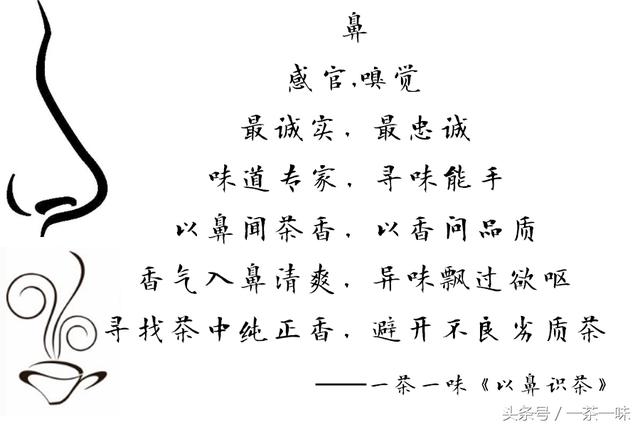 鼻
感官,嗅觉
最诚实，最忠诚
味道专家，寻味能手
以鼻闻茶香，以香问品质
香气入鼻清爽，异味飘过欲呕
寻找茶中纯正香，避开不良劣质茶
——一茶一味《以鼻识茶》
头条号/一茶一味